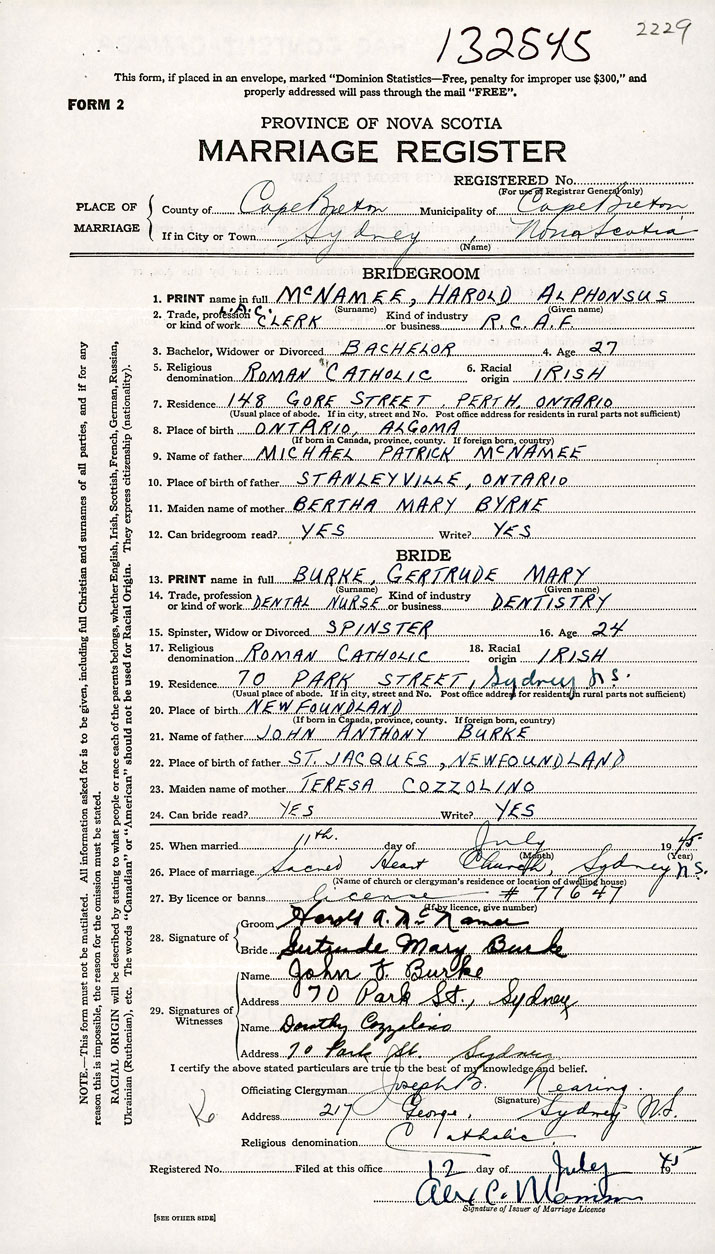 132545
2229
This form, if placed in an envelope, marked "Dominion Statistics—Free, penalty for improper use $300," and
properly addressed will pass through the mail "FREE".
FORM 2
PROVINCE OF NOVA SCOTIA
MARRIAGE REGISTER
REGISTERED No.
(For use of Registrar General only)
PLACE OF MARRIAGE
County of Cape Breton Municipality of Cape Breton
If in City or Town Sydney, Nova Scotia
(Name)
BRIDEGROOM
1. PRINT name in full McNAMEE, HAROLD ALPHONSUS
(Surname) (Given name)
2. Trade, profession or kind of work L.A.C. CLERK Kind of industry or business R.C.A.F.
3. Bachelor, Widower or Divorced BACHELOR 4. Age 27
5. Religious denomination ROMAN CATHOLIC 6. Racial origin IRISH
7. Residence 148 GORE STREET PERTH, ONTARIO
(Usual place of abode. If in city, street and No. Post office address for residents in rural parts not sufficient)
8. Place of birth ONTARIO, ALGOMA
(If born in Canada, province, county. If foreign born, country)
9. Name of father MICHAEL PATRICK McNAMEE
10. Place of birth of father STANLEYVILLE, ONTARIO
11. Maiden name of mother BERTHA MARY BYRNE
12. Can bridegroom read? YES Write? YES
BRIDE
13. PRINT name in full BURKE, GERTRUDE MARY
(Surname) (Given name)
14. Trade, profession or kind of work DENTAL NURSE Kind of industry or business DENTISTRY
15. Spinster, Widow or Divorced SPINSTER 16. Age 24
17. Religious denomination ROMAN CATHOLIC 18. Racial origin IRISH
19. Residence 70 PARK STREET, Sydney N.S.
(Usual place of abode. If in city, street and No. Post office address for residents in rural parts not sufficient)
20. Place of birth NEWFOUNDLAND
(If born in Canada, province, county. If foreign born, country)
21. Name of father JOHN ANTHONY BURKE
22. Place of birth of father ST. JACQUES, NEWFOUNDLAND
23. Maiden name of mother TERESA COZZOLINO
24. Can bride read? YES Write? YES
25. When married 11th. day of July 1945
(Month) (Year)
26. Place of marriage Sacred Heart Church, Sydney N.S.
(Name of church or clergyman's residence or location of dwelling house)
27. By licence or banns license # 77647
(If by licence, give number)
28. Signature of
Groom Harold A. McNamee
Bride Gertrude Mary Burke
29. Signatures of Witnesses
Name John F. Burke
Address 70 Park St., Sydney
Name Dorothy Cozzolino
Address 70 Park St. Sydney
I certify the above stated particulars are true to the best of my knowledge and belief.
Officiating Clergyman Joseph B. Nearing.
(Signature)
Address 217 George, Sydney N.S.
Religious denomination Catholic
Registered No. Filed at this office 12 day of July 1945
Alex C. Morrison
Signature of Issuer of Marriage Licence
[SEE OTHER SIDE]
NOTE.—This form must not be mutilated. All information asked for is to be given, including full Christian and surnames of all parties, and if for any
reason this is impossible, the reason for the omission must be stated.
RACIAL ORIGIN will be described by stating to what people or race each of the parents belongs, whether English, Irish, Scottish, French, German, Russian,
Ukrainian (Ruthenian), etc. The words "Canadian" or "American" should not be used for Racial Origin. They express citizenship (nationality).